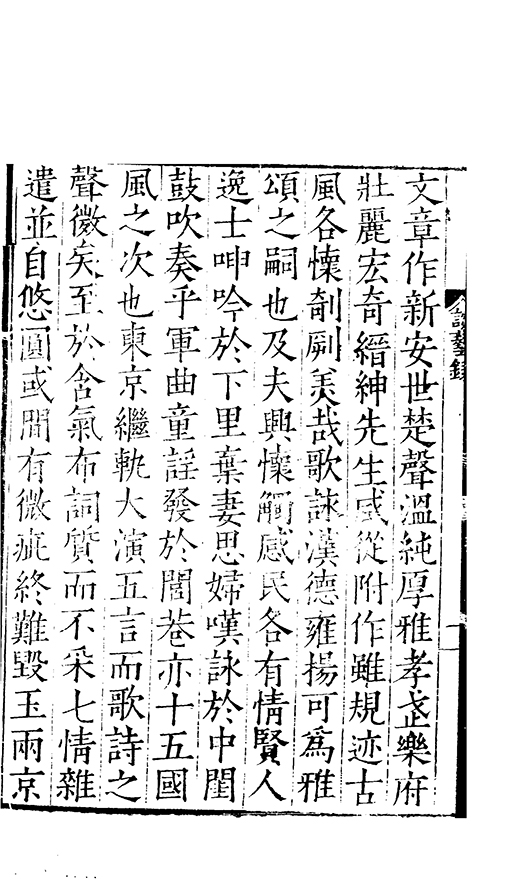 文章作新安世楚聲溫純厚雅孝武樂府
壯麗宏奇縉紳先生咸從附作雖規迹古
風各懷剞劂美哉歌詠漢德雍揚可為雅
頌之嗣也及夫興懷觸感民各有情賢人
逸士呻吟於下里棄妻思婦嘆詠於中閨
鼓吹奏乎軍曲童謡發於閭巷亦十五國
風之次也東京繼軌大演五言而歌詩之
聲微矣至於含氣布詞質而不采七情雜
遣並自悠圓或間有微疵終難毀玉兩京
談藝錄